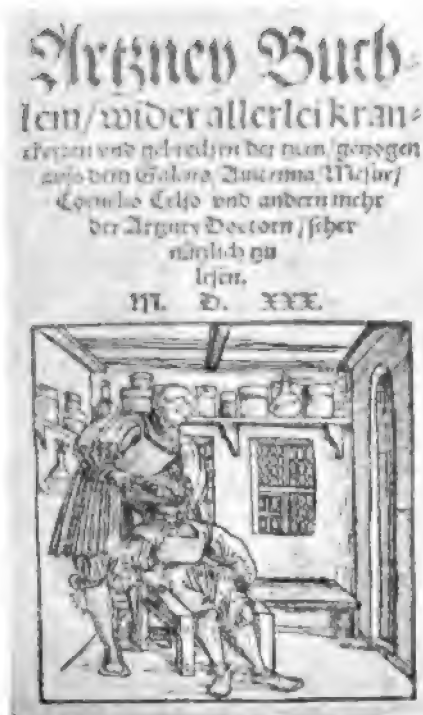 Artzney Buch-
lein/wider allerlei kran-
ckeyten vnd gebrechen der tzeen/getzogen
auss dem Galeno, Auicenna, Mesue/
Cornelio Celso vnd andern mehr
der Artzney Doctorn/seher
nützlich zu
lesen.
M. D. XXX.